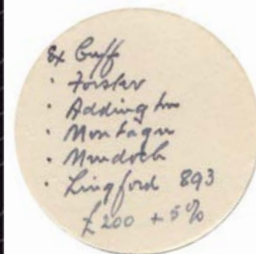 Ex Cuff
· Forster
· Addington
· Montagu
· Murdoch
· Lingford 893
£200 + 5%